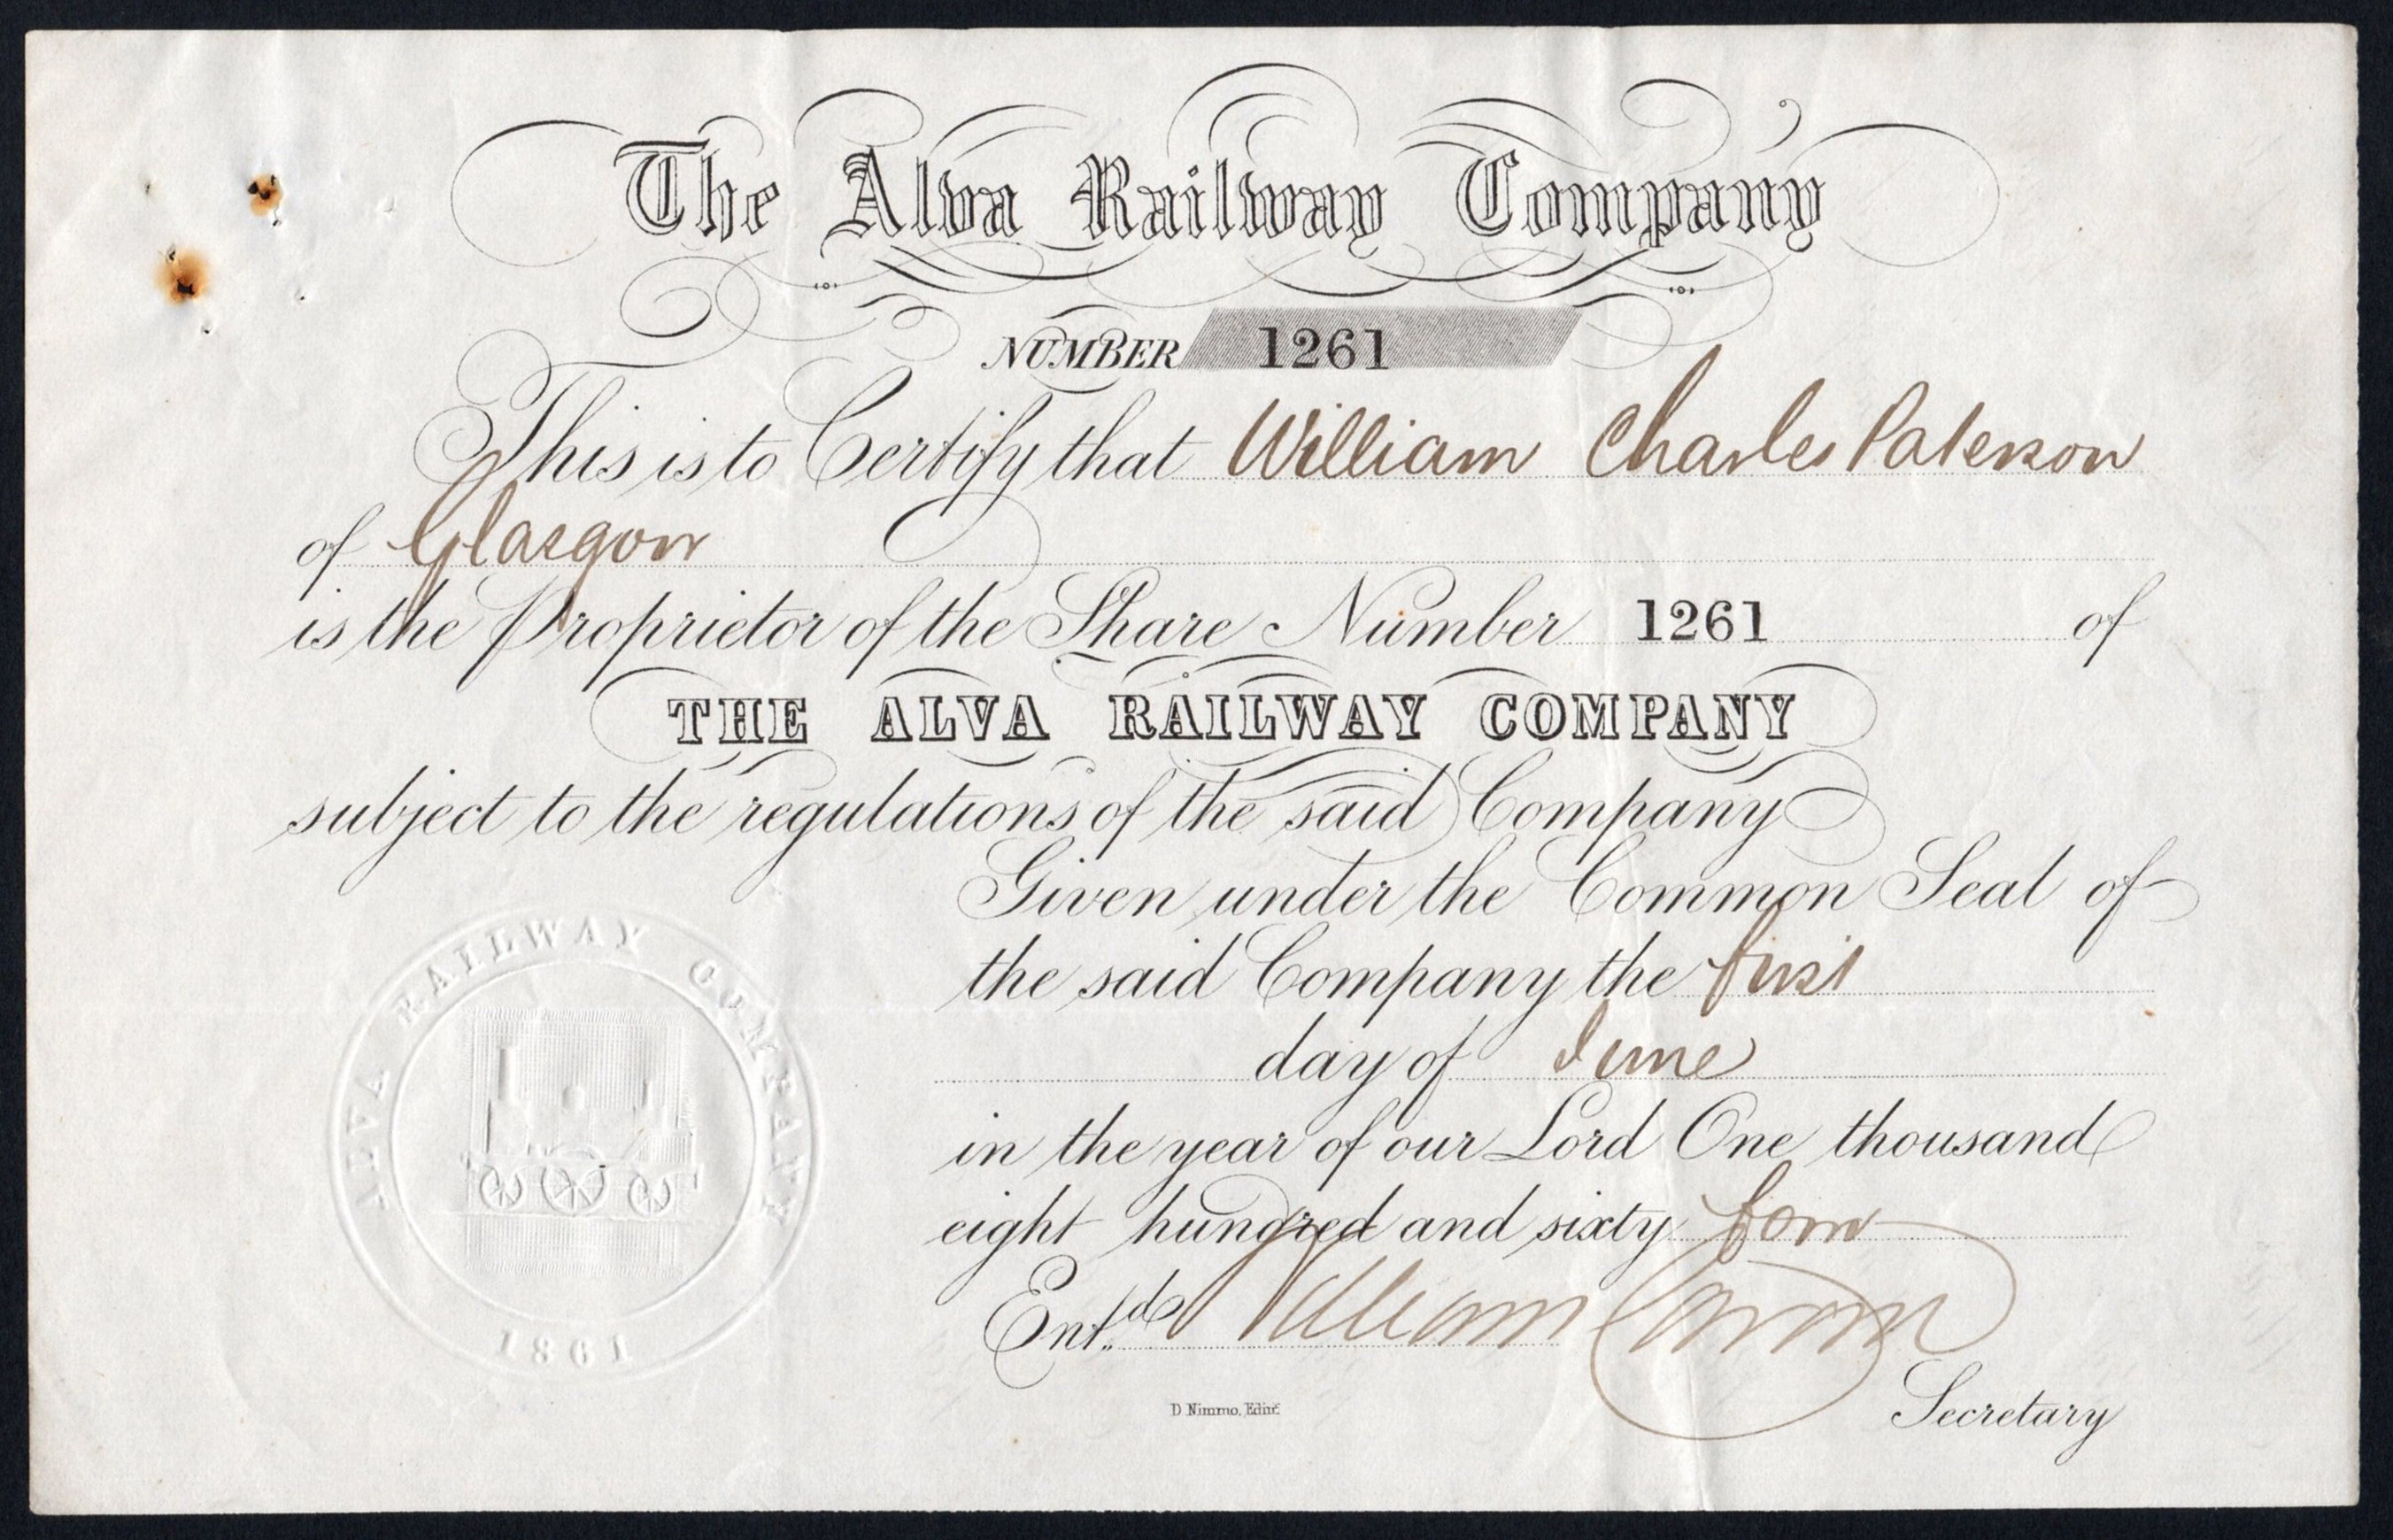 The Alva Railway Company
NUMBER 1261
This is to Certify that William Charles Paterson
of Glasgow
is the Proprietor of the Share Number 1261 of
THE ALVA RAILWAY COMPANY
subject to the regulations of the said Company
Given under the Common Seal of
the said Company the first
day of June
in the year of our Lord One thousand
eight hundred and sixty four
Entd. William
Secretary
D Nimmo, Edinr.
ALVA RAILWAY COMPANY
1861